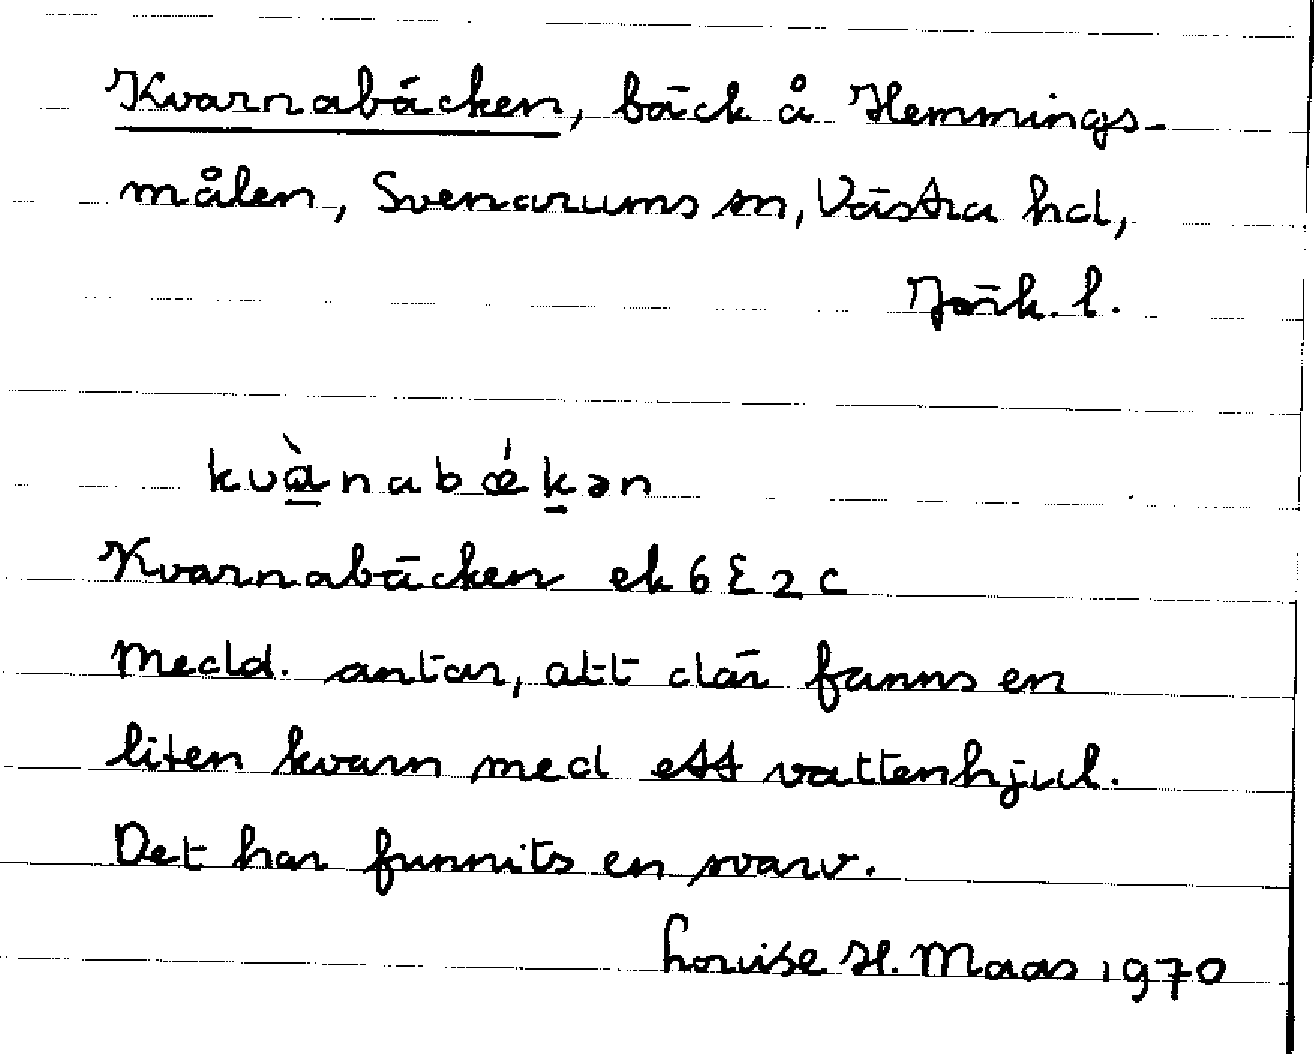 Kvarnabäcken, bäck å Hemmings-
målen, Svenarums sn, Västra hd,
Jönk. l.
kvànabǿkən
Kvarnabäcken ek 6 E 2 c
Medd. antar, att där fanns en
liten kvarn med ett vattenhjul.
Det har funnits en svarv.
Louise H. Maas 1970